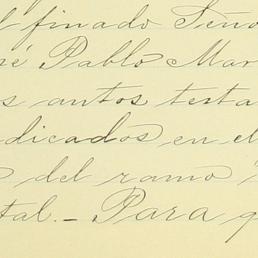 l finado Seño
sé Pablo Mar
s autos testa
dicados en el
del ramo
tal.- Para q